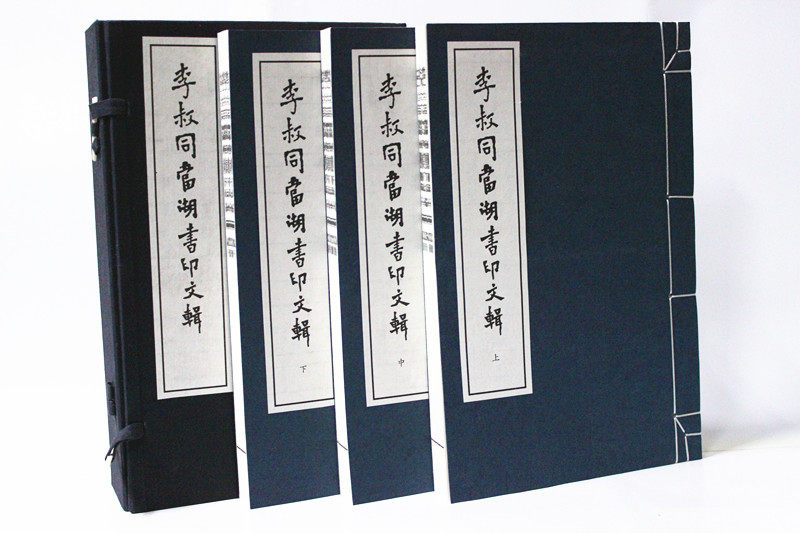 李叔同當湖書印文輯
李叔同當湖書印文輯
下
李叔同當湖書印文輯
中
李叔同當湖書印文輯
上